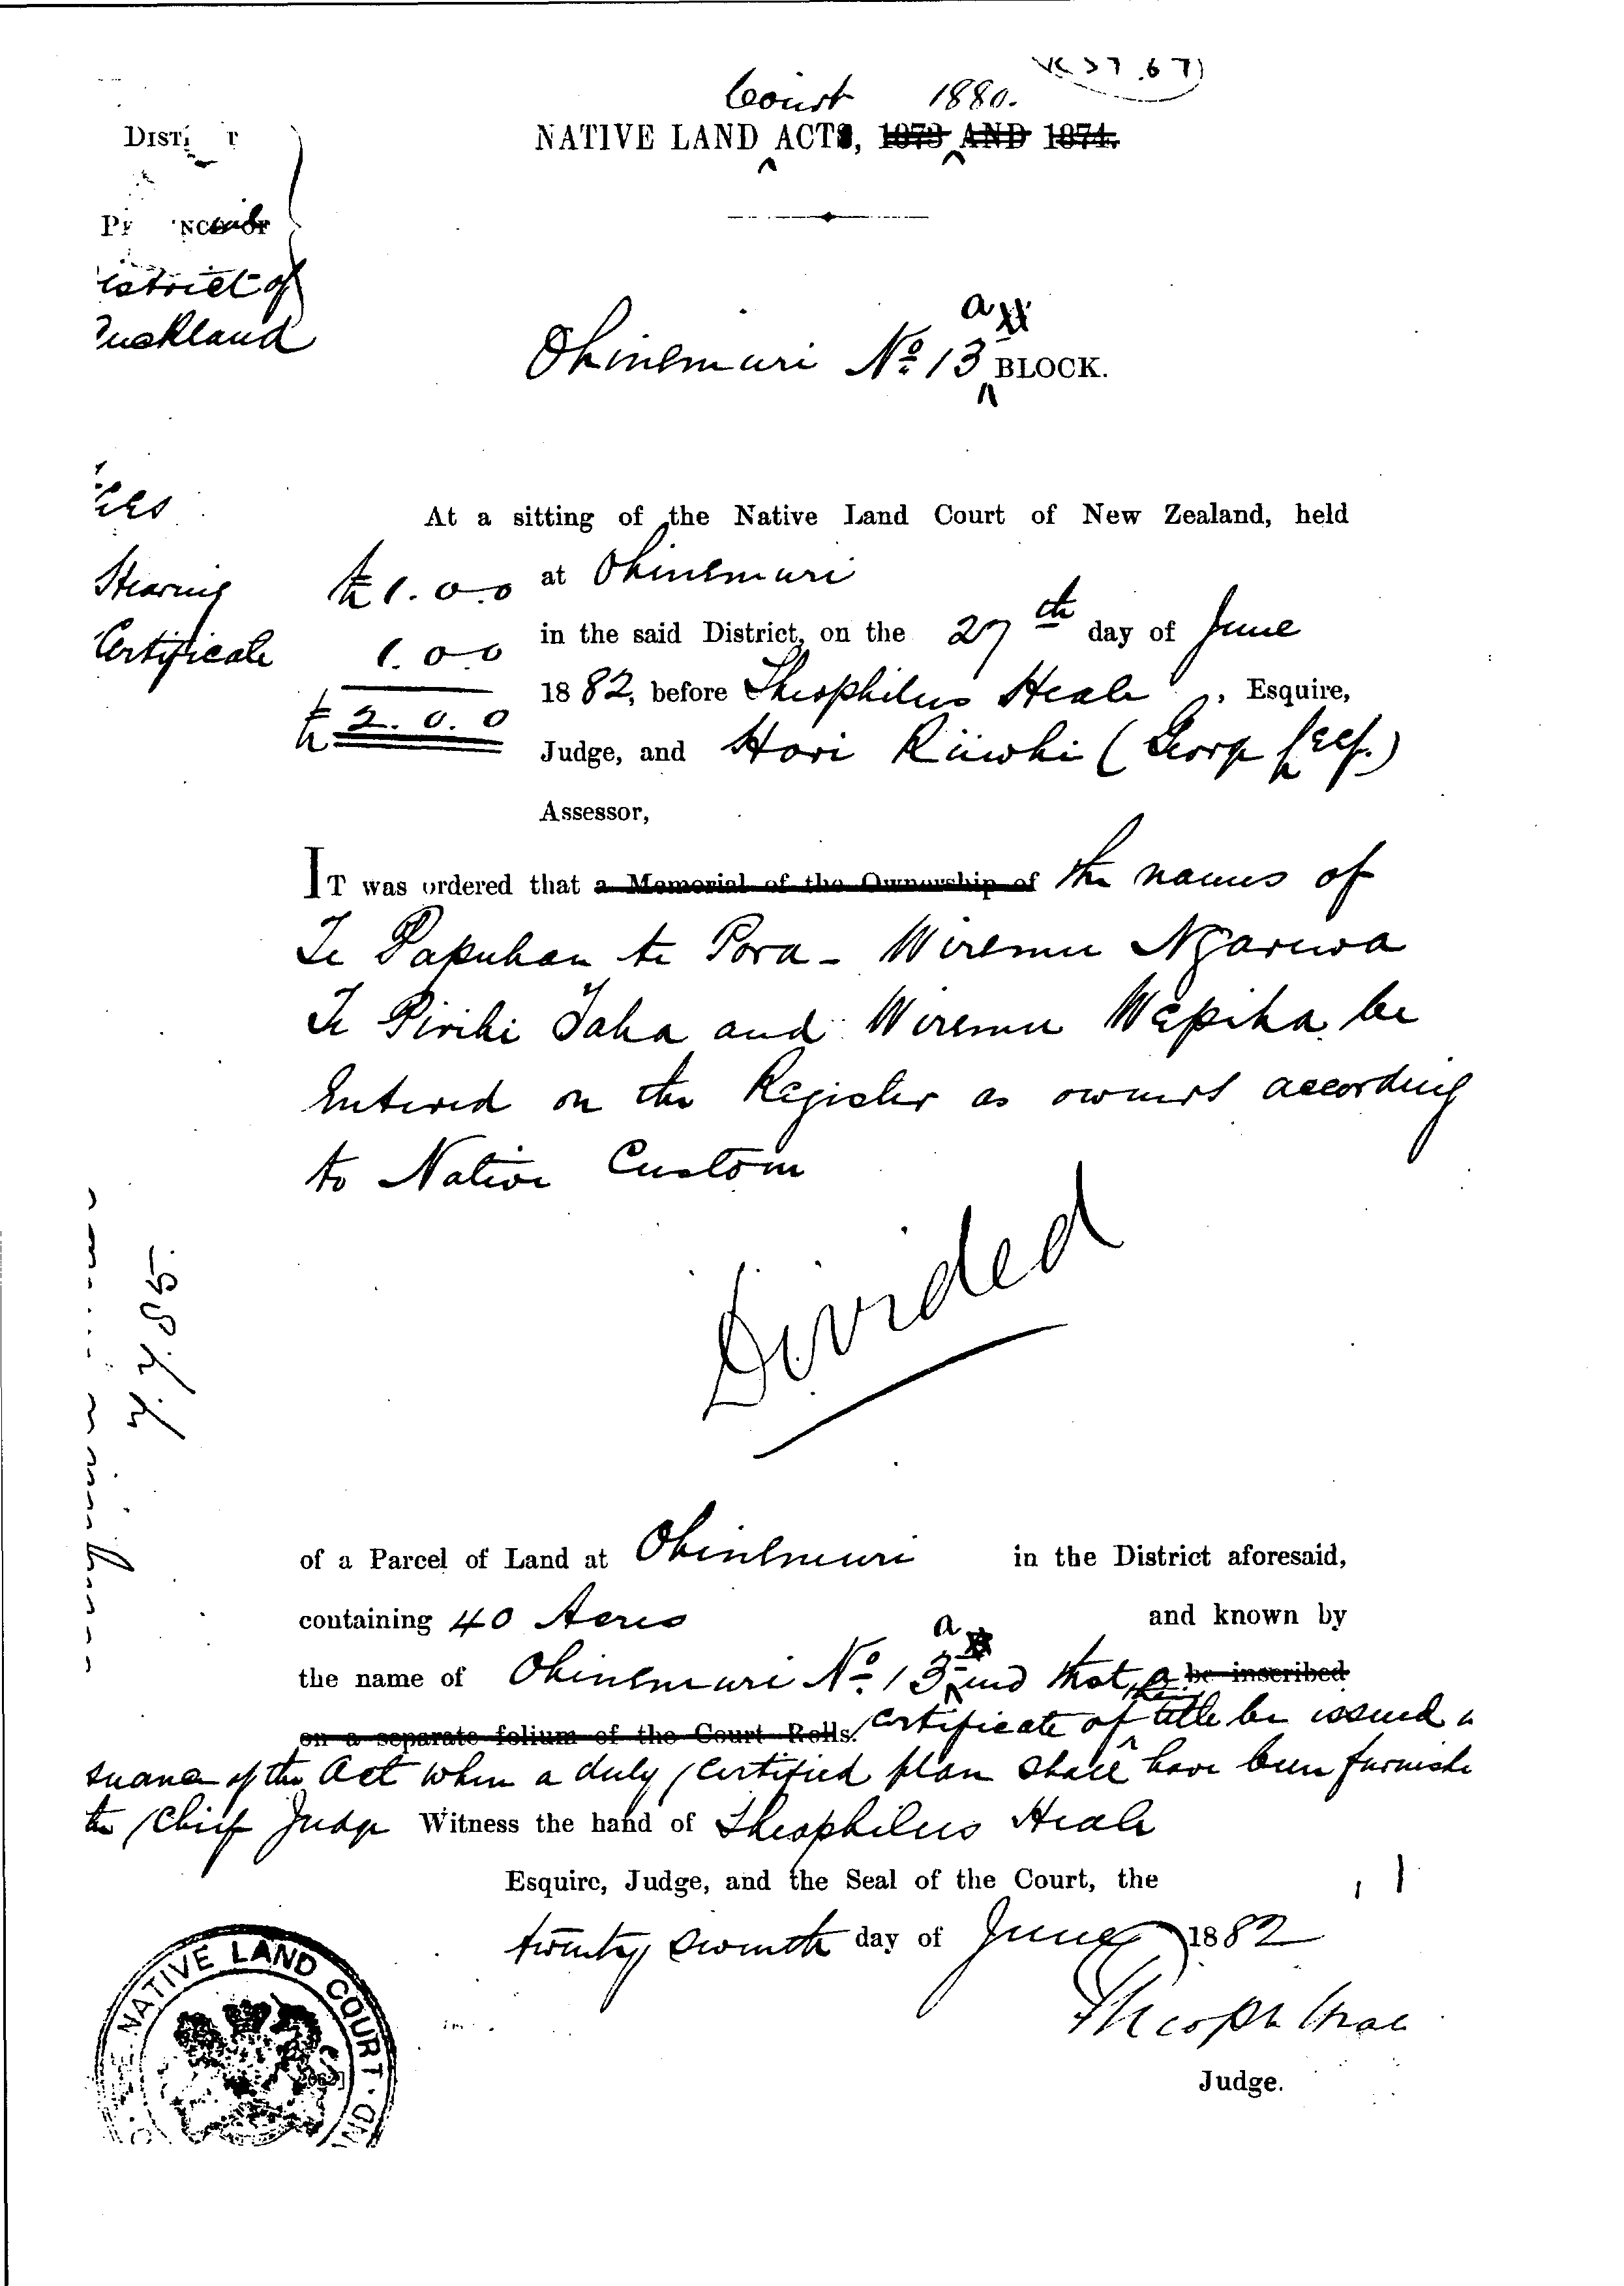 Court 1880.
NATIVE LAND ACTS, 1873 AND 1874.
DIST
istrict of
uckland
a
Ohinemuri No. 13 BLOCK.
At a sitting of the Native Land Court of New Zealand, held
Hearing £1.0.0 at Ohinemuri
in the said District, on the 27th day of June
Certificate 1.0.0
1882, before Theophilus Heale, Esquire,
£2.0.0
Judge, and Hori Riiwhi (George
Assessor,
IT was ordered that a Memorial of the Ownership of the names of
Te Papuhau te Pora - Wiremu Ngaruwa
Te Pirihi Taha and Wiremu Wepiha be
Entered on the Register as owners according
to Native Custom
Divided
7.7.85.
of a Parcel of Land at Ohinemuri in the District aforesaid,
containing 40 Acres and known by
a
the name of Ohinemuri No. 13 and that a be inscribed
on a separate folium of the Court Rolls. Certificate of title be issued
suance of the Act when a duly certified plan shall have been furnishe
the Chief Judge Witness the hand of Theophilus Heale
Esquire, Judge, and the Seal of the Court, the
twenty seventh day of June 1882
Theoph Heale
Judge.
NATIVE LAND COURT